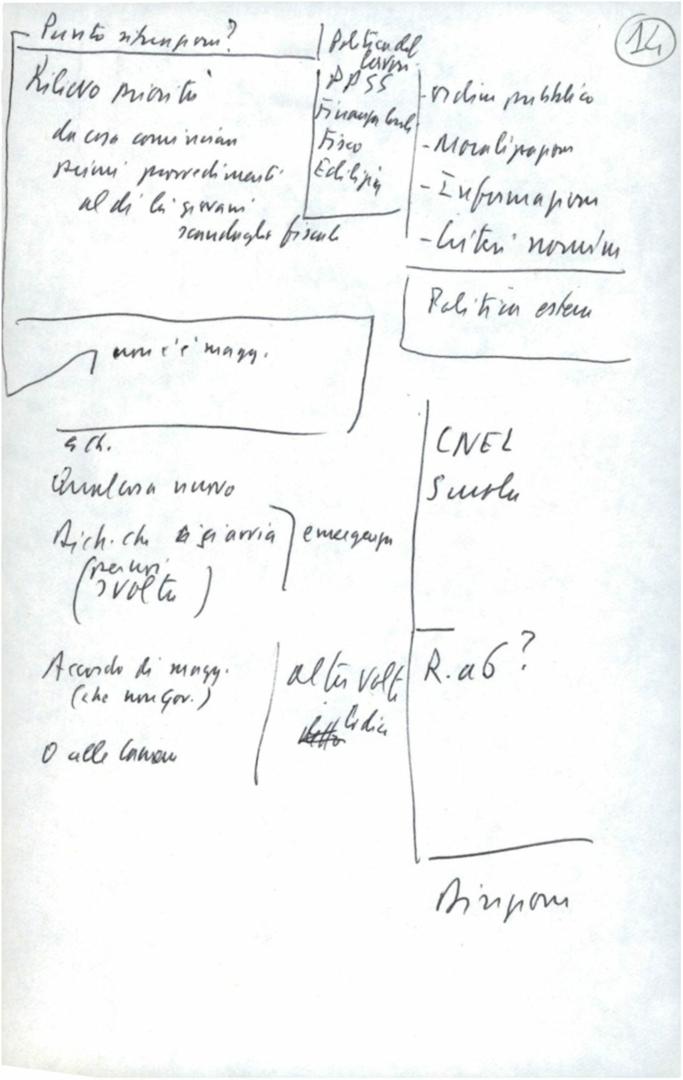 14
Punto situazione?
Rilievo priorità
da cosa cominciare
primi provvedimenti
al di là giovani
fiscali
Politica del
lavoro
PPSS
Finanza locale
Fisco
Edilizia
- ordine pubblico
- Moralizzazione
- Informazione
- Criteri nomine
Politica estera
non c'è magg.
Qualcosa nuovo
Dich. che si avvia
(
svolta)
emergenza
Accordo di magg.
(che non gov.)
O alle Camere
altre volte
CNEL
Scuola
R. a 6?
Direzione